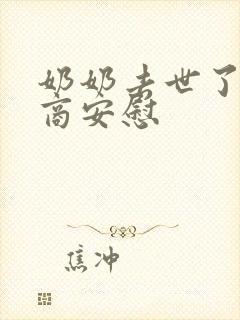 奶奶去世了
商安慰
焦冲